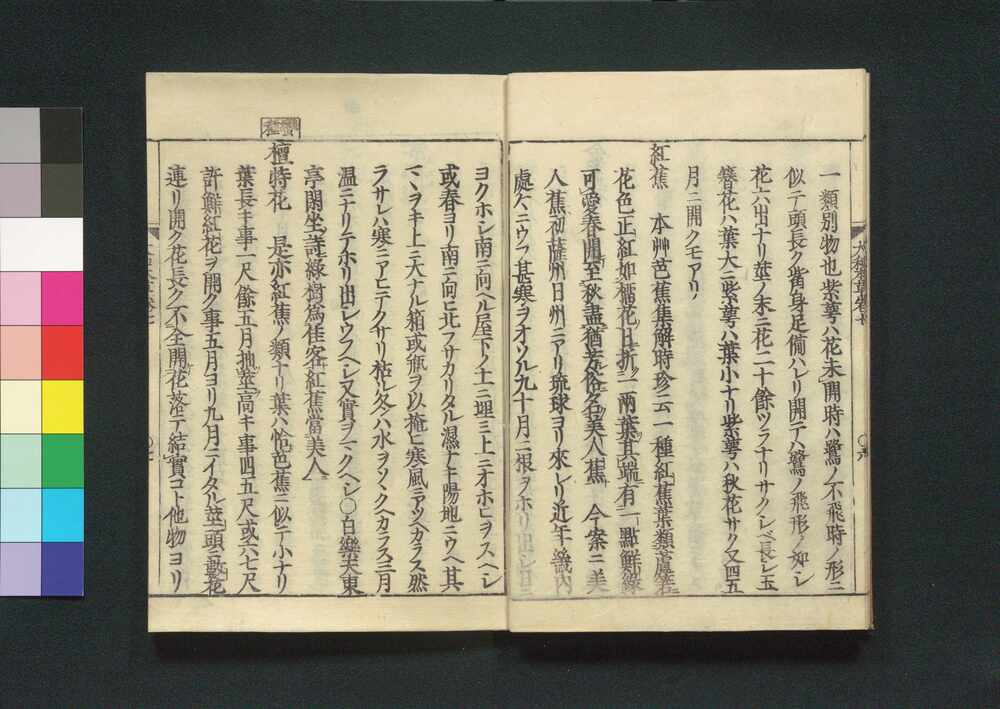 一類別物也紫萼ハ花未開時ハ鷺ノ不飛時ノ形ニ
似テ頭長ク觜身足備ハレリ開テハ鷺ノ飛形ノ如シ
花六出ナリ莖ノ末ニ花二十餘ツラナリサクシベ長シ玉
簪花ハ葉大ニ紫萼ハ葉小ナリ紫萼ハ秋花サク又四五
月ニ開クモアリ
紅蕉 本艸芭蕉集解時珍云一種紅蕉葉類蘆箬
花色正紅如榴花日折一兩葉其端有一點鮮綠
可愛春開至秋盡猶芳俗名美人蕉 今案ニ美
人蕉初薩州日州ニアリ琉球ヨリ來レリ近年畿內
處々ニウフ甚寒ヲオソル九十月ニ根ヲホリ出シ日ニ
ヨクホシ南ニ向ヘル屋下ノ土ニ埋ミ上ニオホヒヲスヘシ
或春ヨリ南ニ向ヒ北フサカリタル濕ナキ陽地ニウヘ其
マヽヲキ上ニ大ナル箱或瓶ヲ以掩ヒ寒風ニアツヘカラス然
ラサレハ寒ニアヒテクサリ枯ル冬ハ水ヲソヽクヘカラス三月
溫ニナリテホリ出シウフヘシ又實ヲマクヘシ○白樂天東
亭閑坐詩綠樹爲佳客紅蕉當美人
檀特花 是亦紅蕉ノ類ナリ葉ハ恰芭蕉ニ似テ小ナリ
葉長キ事一尺餘五月抽莖高キ事四五尺或六七尺
許鮮紅花ヲ開ク事五月ヨリ九月ニイタル莖頭ニ數花
連リ開ク花長ク不全開花落テ結實コト他物ヨリ